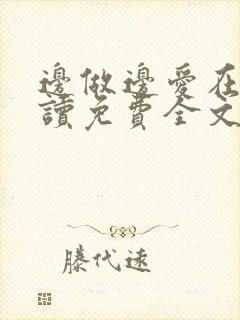 邊做邊愛在
讀免費全文
滕代遠